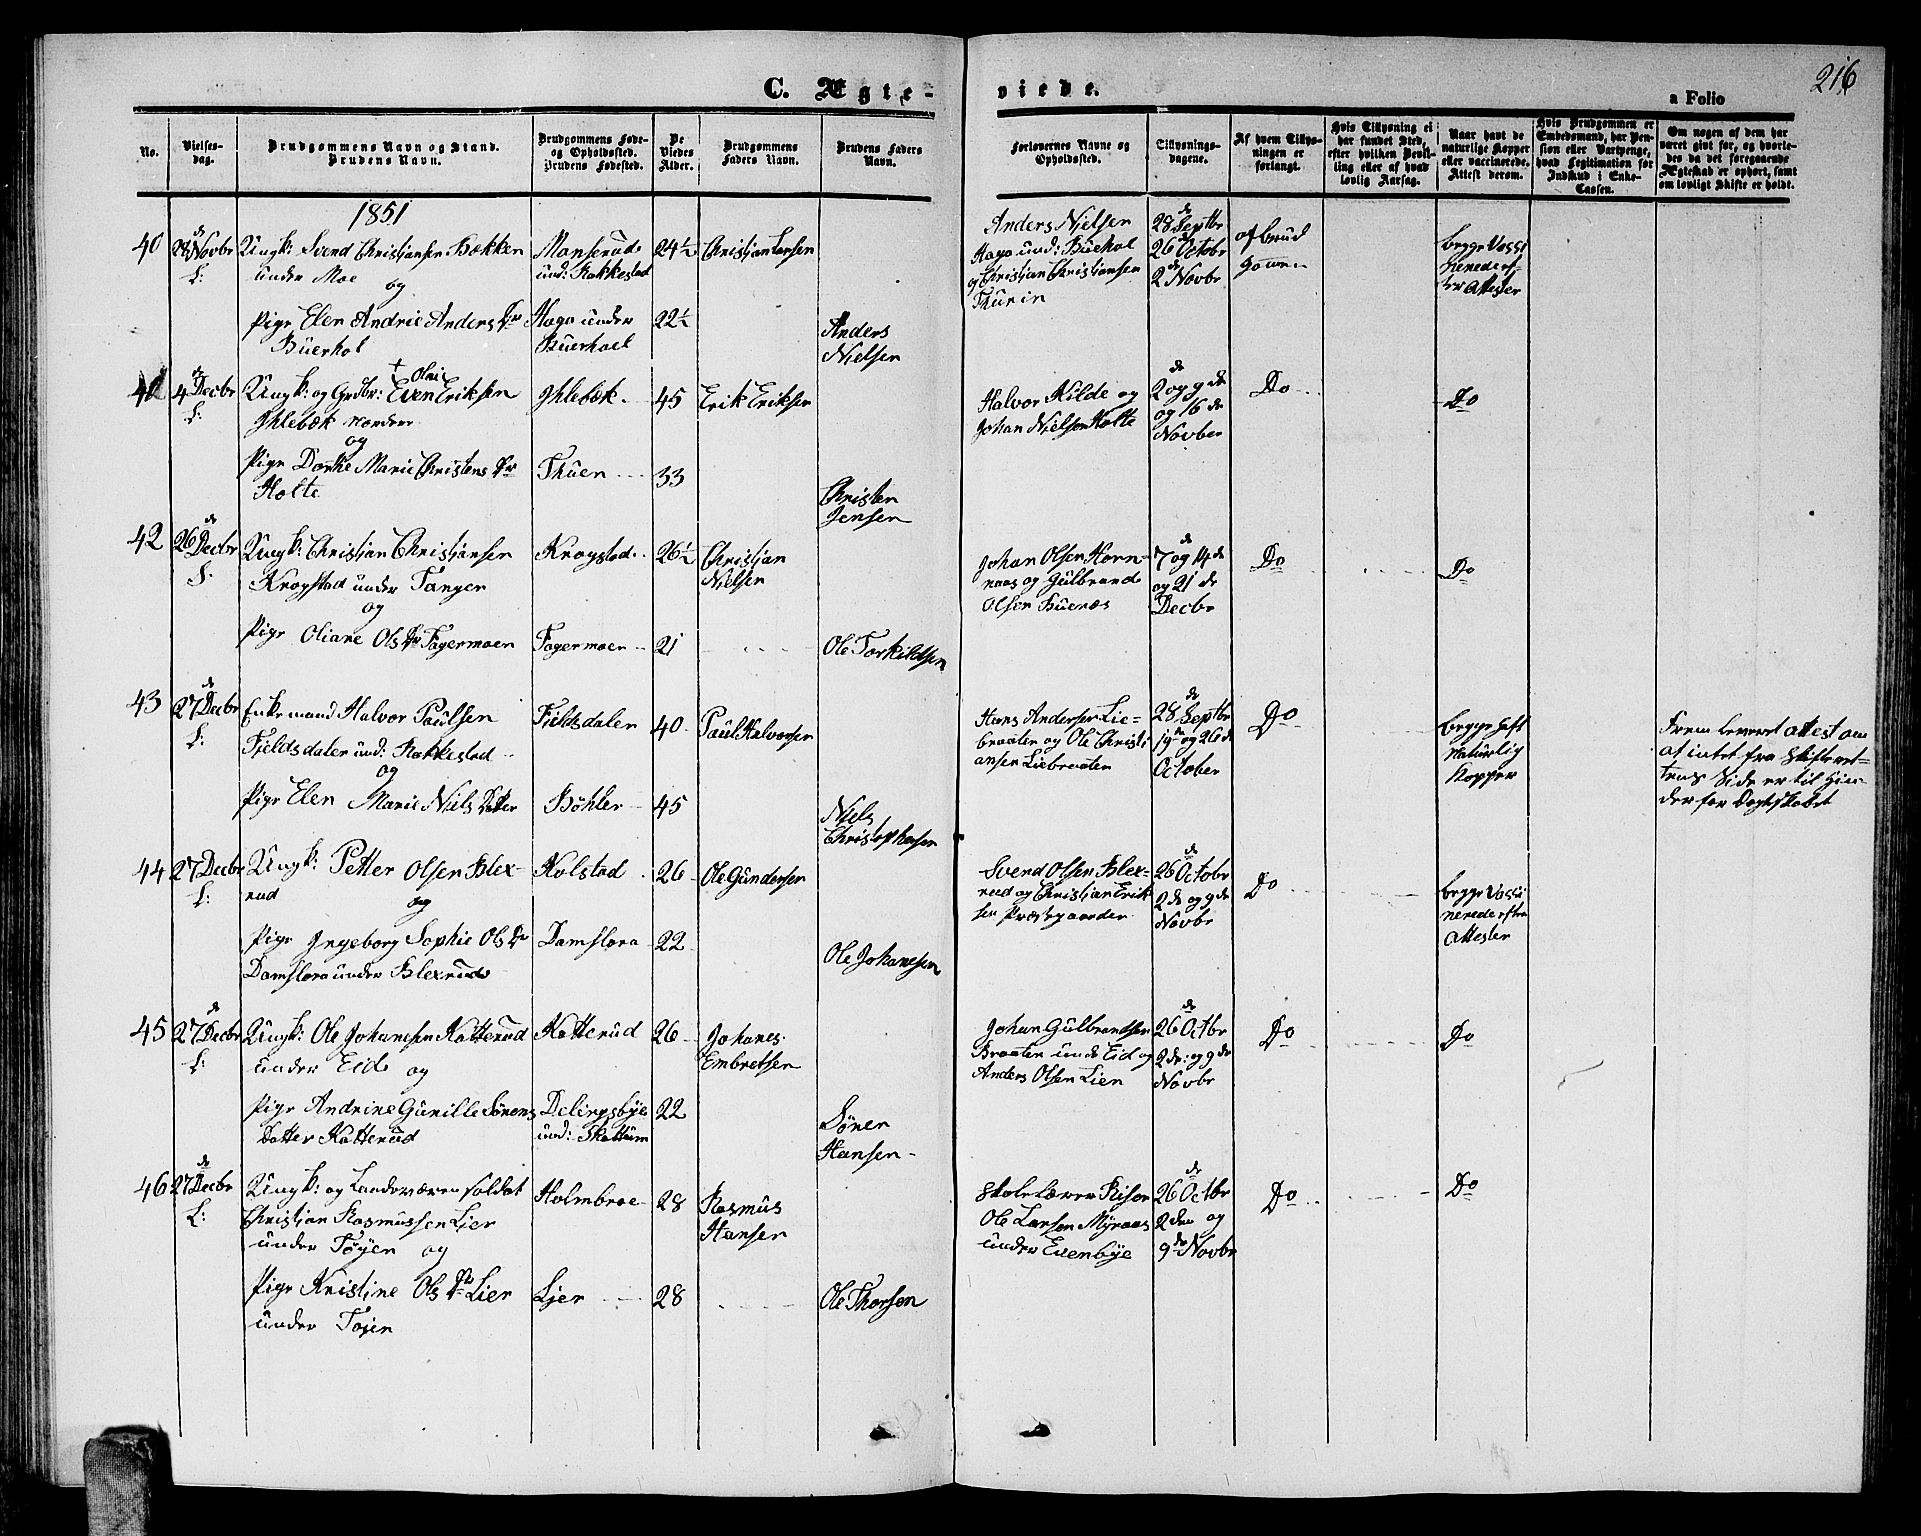 C. Ægte-
viede.
216
a Folio
No.
Vielses-
dag.
Brudgommens Navn og Stand.
Brudens Navn.
Brudgommens Føde-
og Opholdssted.
Brudens Fødested.
De
Viedes
Alder.
Brudgommens
Faders Navn.
Brudens Faders
Navn.
Forlovernes Navne og
Opholdssted.
Tillysnings-
dagene.
Af hvem Tillys-
ningen er
forlangt.
Hvis Tillysning ei
har fundet Sted,
efter hvilken Bevil-
ling eller af hvad
lovlig Aarsag.
Naar havt de
naturlige Kopper
eller vaccinerede.
Attest derom.
Hvis Brudgommen er
Embedsmand, har Pen-
sion eller Vartpenge,
hvad Legitimation for
Indskud i Enke-
Cassen.
Om nogen af dem har
været gift før, og hvorle-
des da det foregaaende
Ægteskab er ophørt, samt
om lovligt Skifte er holdt.
1851
40
28 de Novbr
L:
Ungk: Svend Christjansen Bakken
under Moe
og
Pige Elen Andrie Anders Dr
Buerhol
Manserud
und: Rakkestad
Haga under
Buerhoel
24½
22½
Christjan Larsen
Anders
Nielsen
Anders Nielsen
Haga und: Buehol
og Christjan Christjansen
Thurin
28 de Septbr
26 Octobr
2 de Novbr
af brud
gommen
begge Vassi
nerede ef-
ter Attester
41
4 de Decbr
L:
Ungk: og Grdbr: Even Eriksen
Olai
Ihlebæk nordre
og
Pige Dorthe Marie Christens Dr
Holte
Ihlebæk
Thuen
45
33
Erik Eriksen
Christen
Jensen
Halvor Kilde og
Johan Nielsen Holte
2 de og 9 de
og 16 de
Novber
Do
Do
42
26 de Decbr
L:
Ungk: Christjan Christjansen
Krogstad under Tangen
og
Pige Oliane Ols Dr Fagermoen
Krogstad
Fagermoen
26½
21
Christjan
Nielsen
Ole Torkildsen
Johan Olsen Horn-
naes og Gulbrand
Olsen Buenæs
7 de og 14 de
og 21 de
Decbr
Do
Do
43
27 de Decbr
L:
Enkemand Halvor Paulsen
Fjeldsdalen und: Rakkestad
og
Pige Elen Marie Niels Datter
Fieldsdalen
Bøhler
40
45
Paul Halvorsen
Niels
Christophersen
Hans Andersen Lie-
braaten og Ole Christi
ansen Liebraaten
28 de Septbr
19 de og 26 de
October
Do
begge havt
naturlig
Kopper
Fremleveret Attest om
at intet fra Skifteret-
tens Side er til Hin-
der for Ægteskabet
44
27 Decbr
L:
Ungk: Petter Olsen Blex-
rud
og
Pige Ingeborg Sophie Ols Dr
Damslora under Blexrud
Kolstad
Damslora
26
22
Ole Gundersen
Ole Johanesen
Svend Olsen Blex-
rud og Christian Erik
sen Præstegaarden
26 de Octobr
2 de og 9 de
Novbr
Do
begge Vassi
nerede efter
Attester
45
27 de Decbr
L:
Ungk: Ole Johanesen Katterud
under Eid
og
Pige Andrine Gunille Sørens
Datter Katterud
Katterud
Delingsbye
und: Skattum
26
22
Johanes
Embretsen
Søren
Hansen
Johan Gulbrandsen
Braaten und Eid og
Anders Olsen Lien
26 de Octbr
2 de: og 9 de
Novbr
Do
Do
46
27 de Decbr
L:
Ungk: og Landeværnsoldat
Christian Rasmussen Lier
under Tøyen og
Pige Kristine Ols Dr Lier
under Tøjen
Holmbroe
Ljer
28
28
Rasmus
Hansen
Ole Thorsen
Skolelærer Risen
Ole Larsen Myraas
under Evenbye
26 de Octbr
2 den og
9 de Novbr
Do
Do